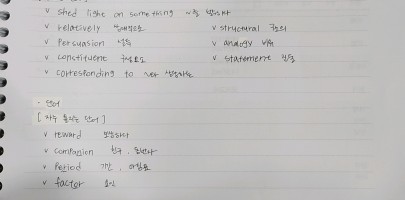 v shed light on something ~을 밝히다
v relatively 상대적으로 v structural 구조의
v persuasion 설득 v analogy 비유
v constituent 구성요소 v statement 진술
v corresponding to ~에 상응하는
- 단어
[ 자주 틀리는 단어 ]
v reward 보상하다
v companion 친구, 동반자
v period 기간, 마침표
v factor 요인